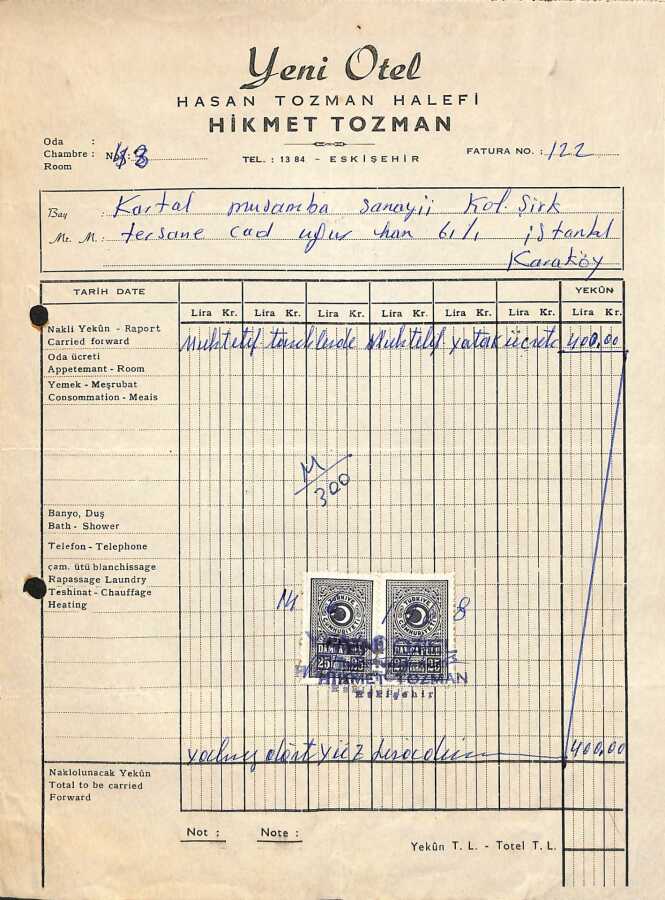 Yeni Otel
HASAN TOZMAN HALEFİ
HİKMET TOZMAN
TEL. : 13 84 - ESKİŞEHİR
Oda :
Chambre : No:
Room
FATURA NO. : 122
Bay : Kartal muşamba sanayii Kol. Şirk
Mr. M. : tersane cad uğur han 61/1 istanbul
Karaköy
TARİH DATE YEKÛN
Lira Kr. Lira Kr. Lira Kr. Lira Kr. Lira Kr. Lira Kr. Lira Kr.
Nakli Yekûn - Raport
Carried forward
Muhtelif tarihlerde Muhtelif yatak ücreti 400,00
Oda ücreti
Appetemant - Room
Yemek - Meşrubat
Consommation - Meais
M/300
Banyo, Duş
Bath - Shower
Telefon - Telephone
çam. ütü blanchissage
Rapassage Laundry
Teshinat - Chauffage
Heating
TÜRKİYE CUMHURİYETİ
DAMGA PULU
25 25
TÜRKİYE CUMHURİYETİ
DAMGA PULU
25 25
YENİ OTEL
HİKMET TOZMAN
Eskişehir
yalnız dört yüz liradır 400,00
Naklolunacak Yekûn
Total to be carried
Forward
Not : Note :
Yekûn T. L. - Totel T. L.